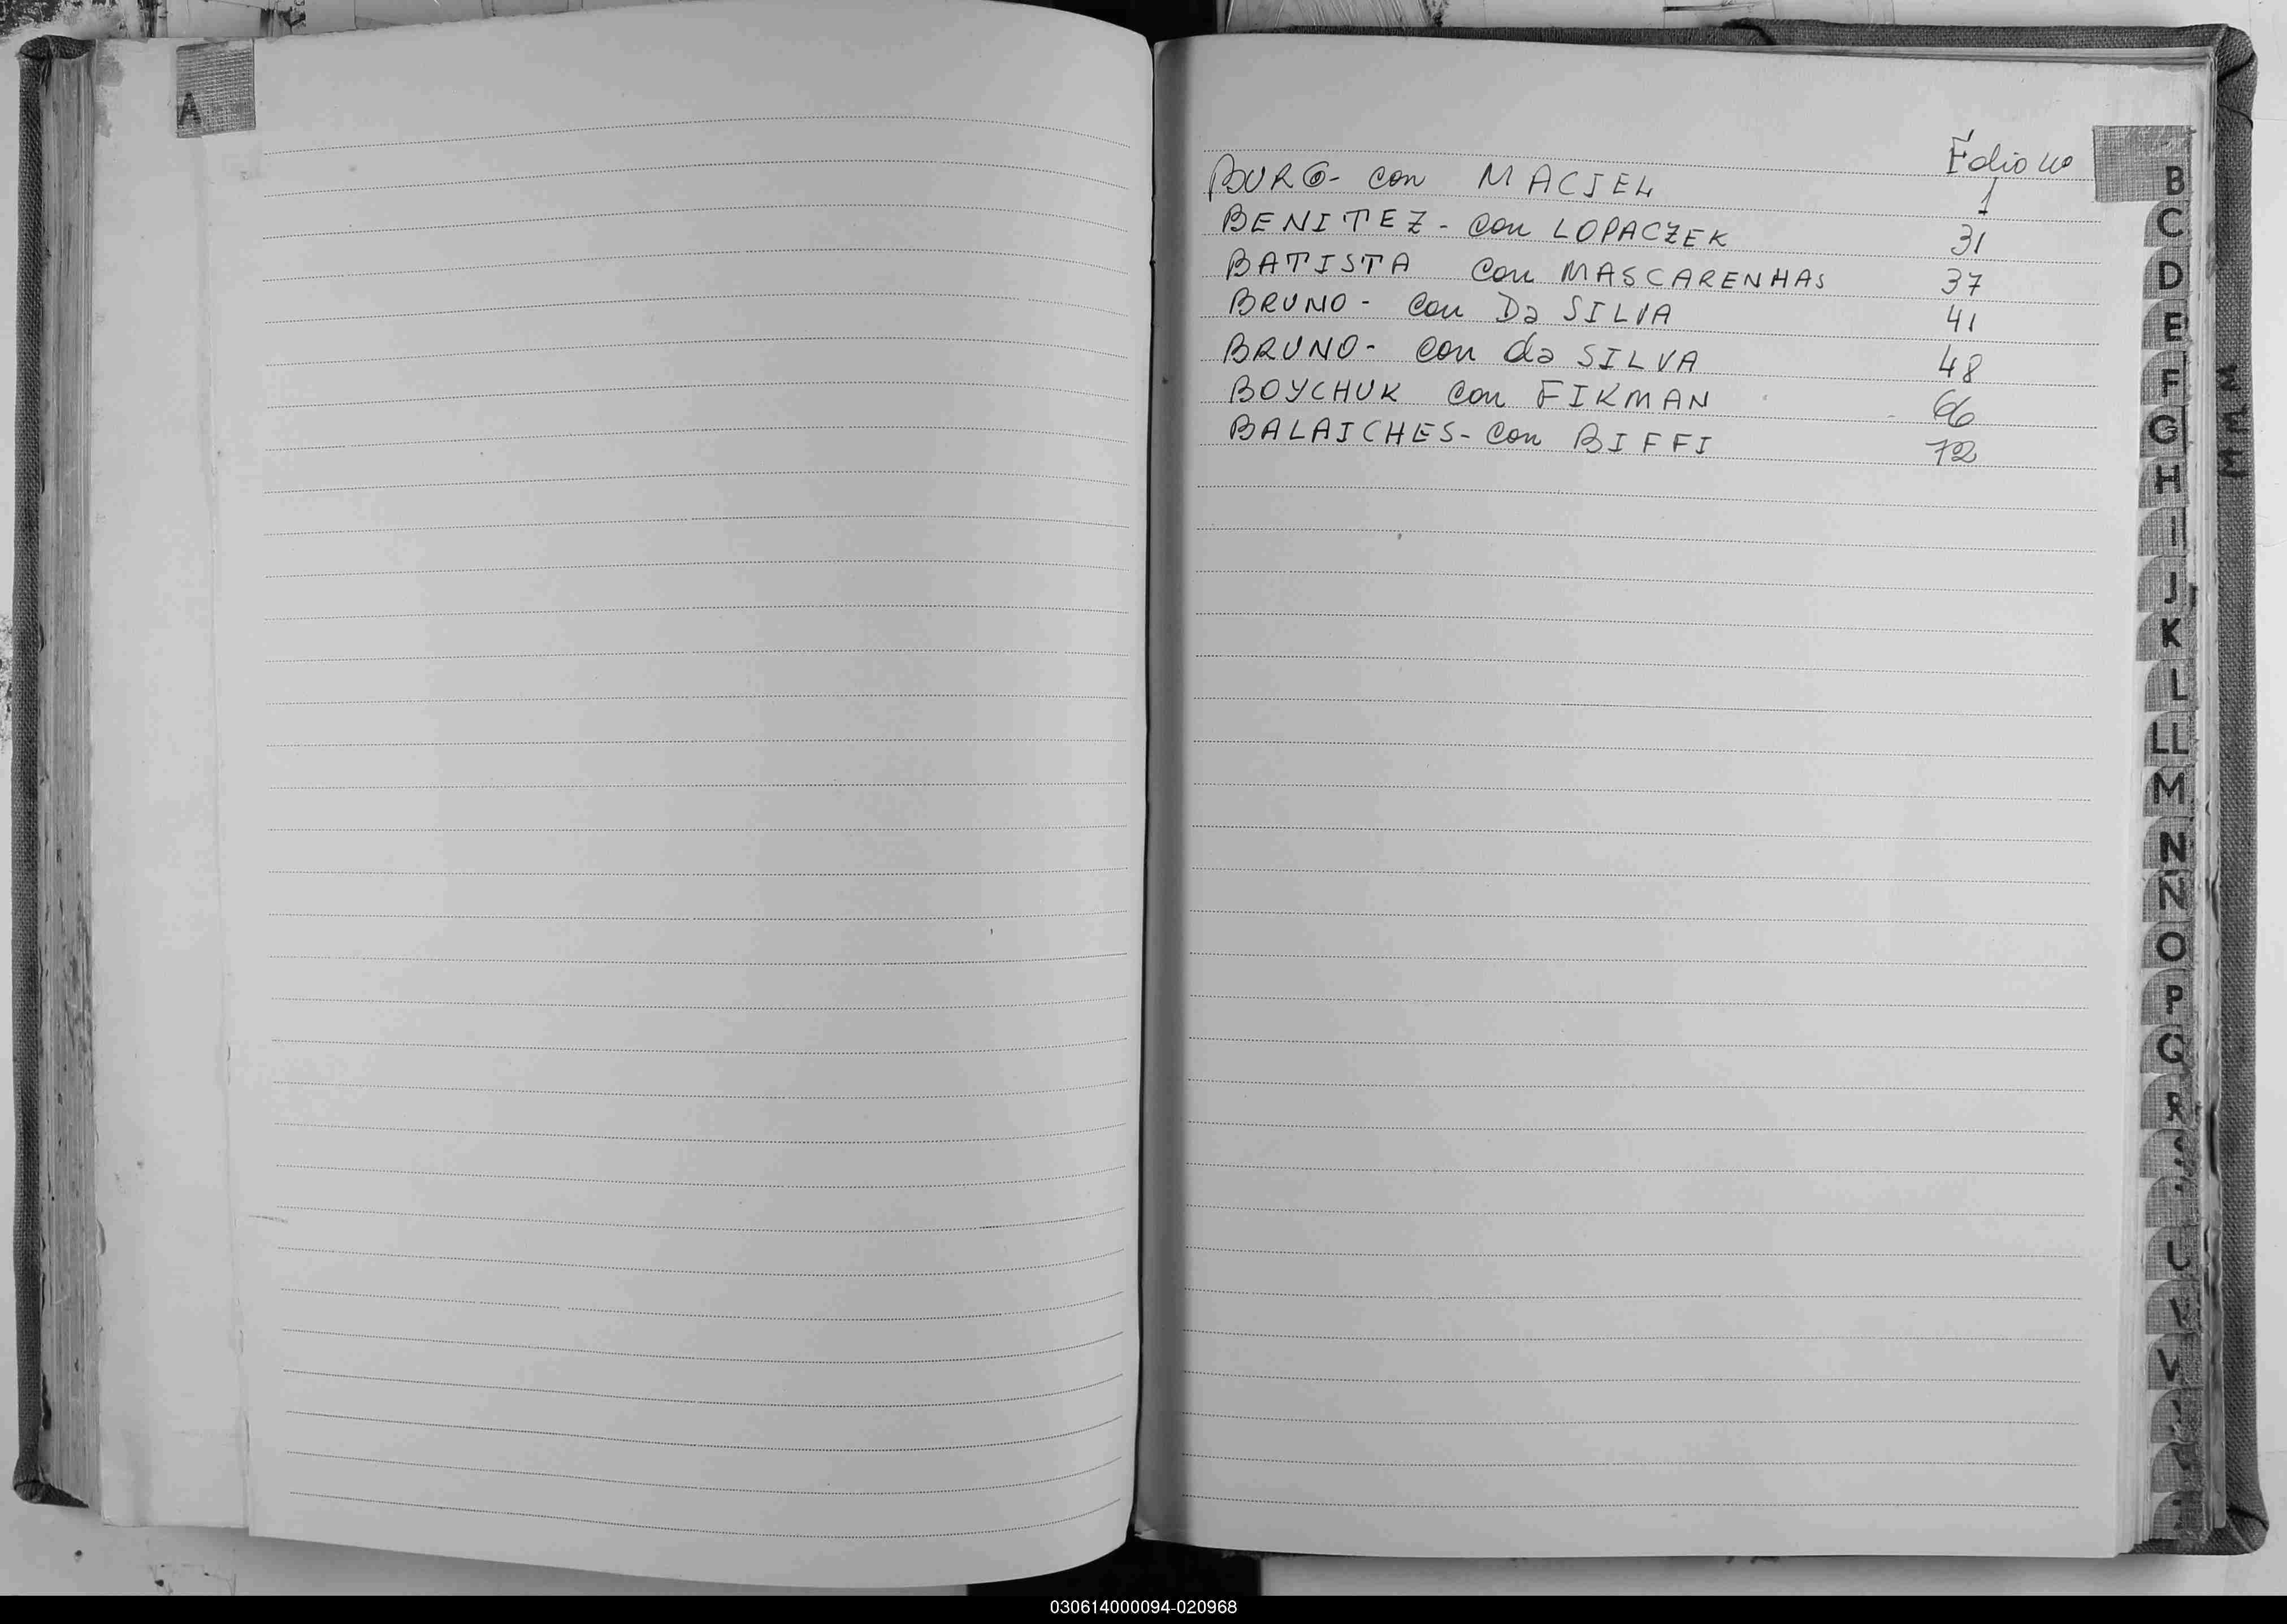 A
Fólio no
BURG- con MACIEL 1
BENITEZ- con LOPACZEK 31
BATISTA con MASCARENHAS 37
BRUNO- con Da SILVA 41
BRUNO- con da SILVA 48
BOYCHUK con FIKMAN 66
BALAICHES- con BIFFI 72
B
C
D
E
F
G
H
I
J
K
L
LL
M
N
Ñ
O
P
Q
R
V
030614000094-020968